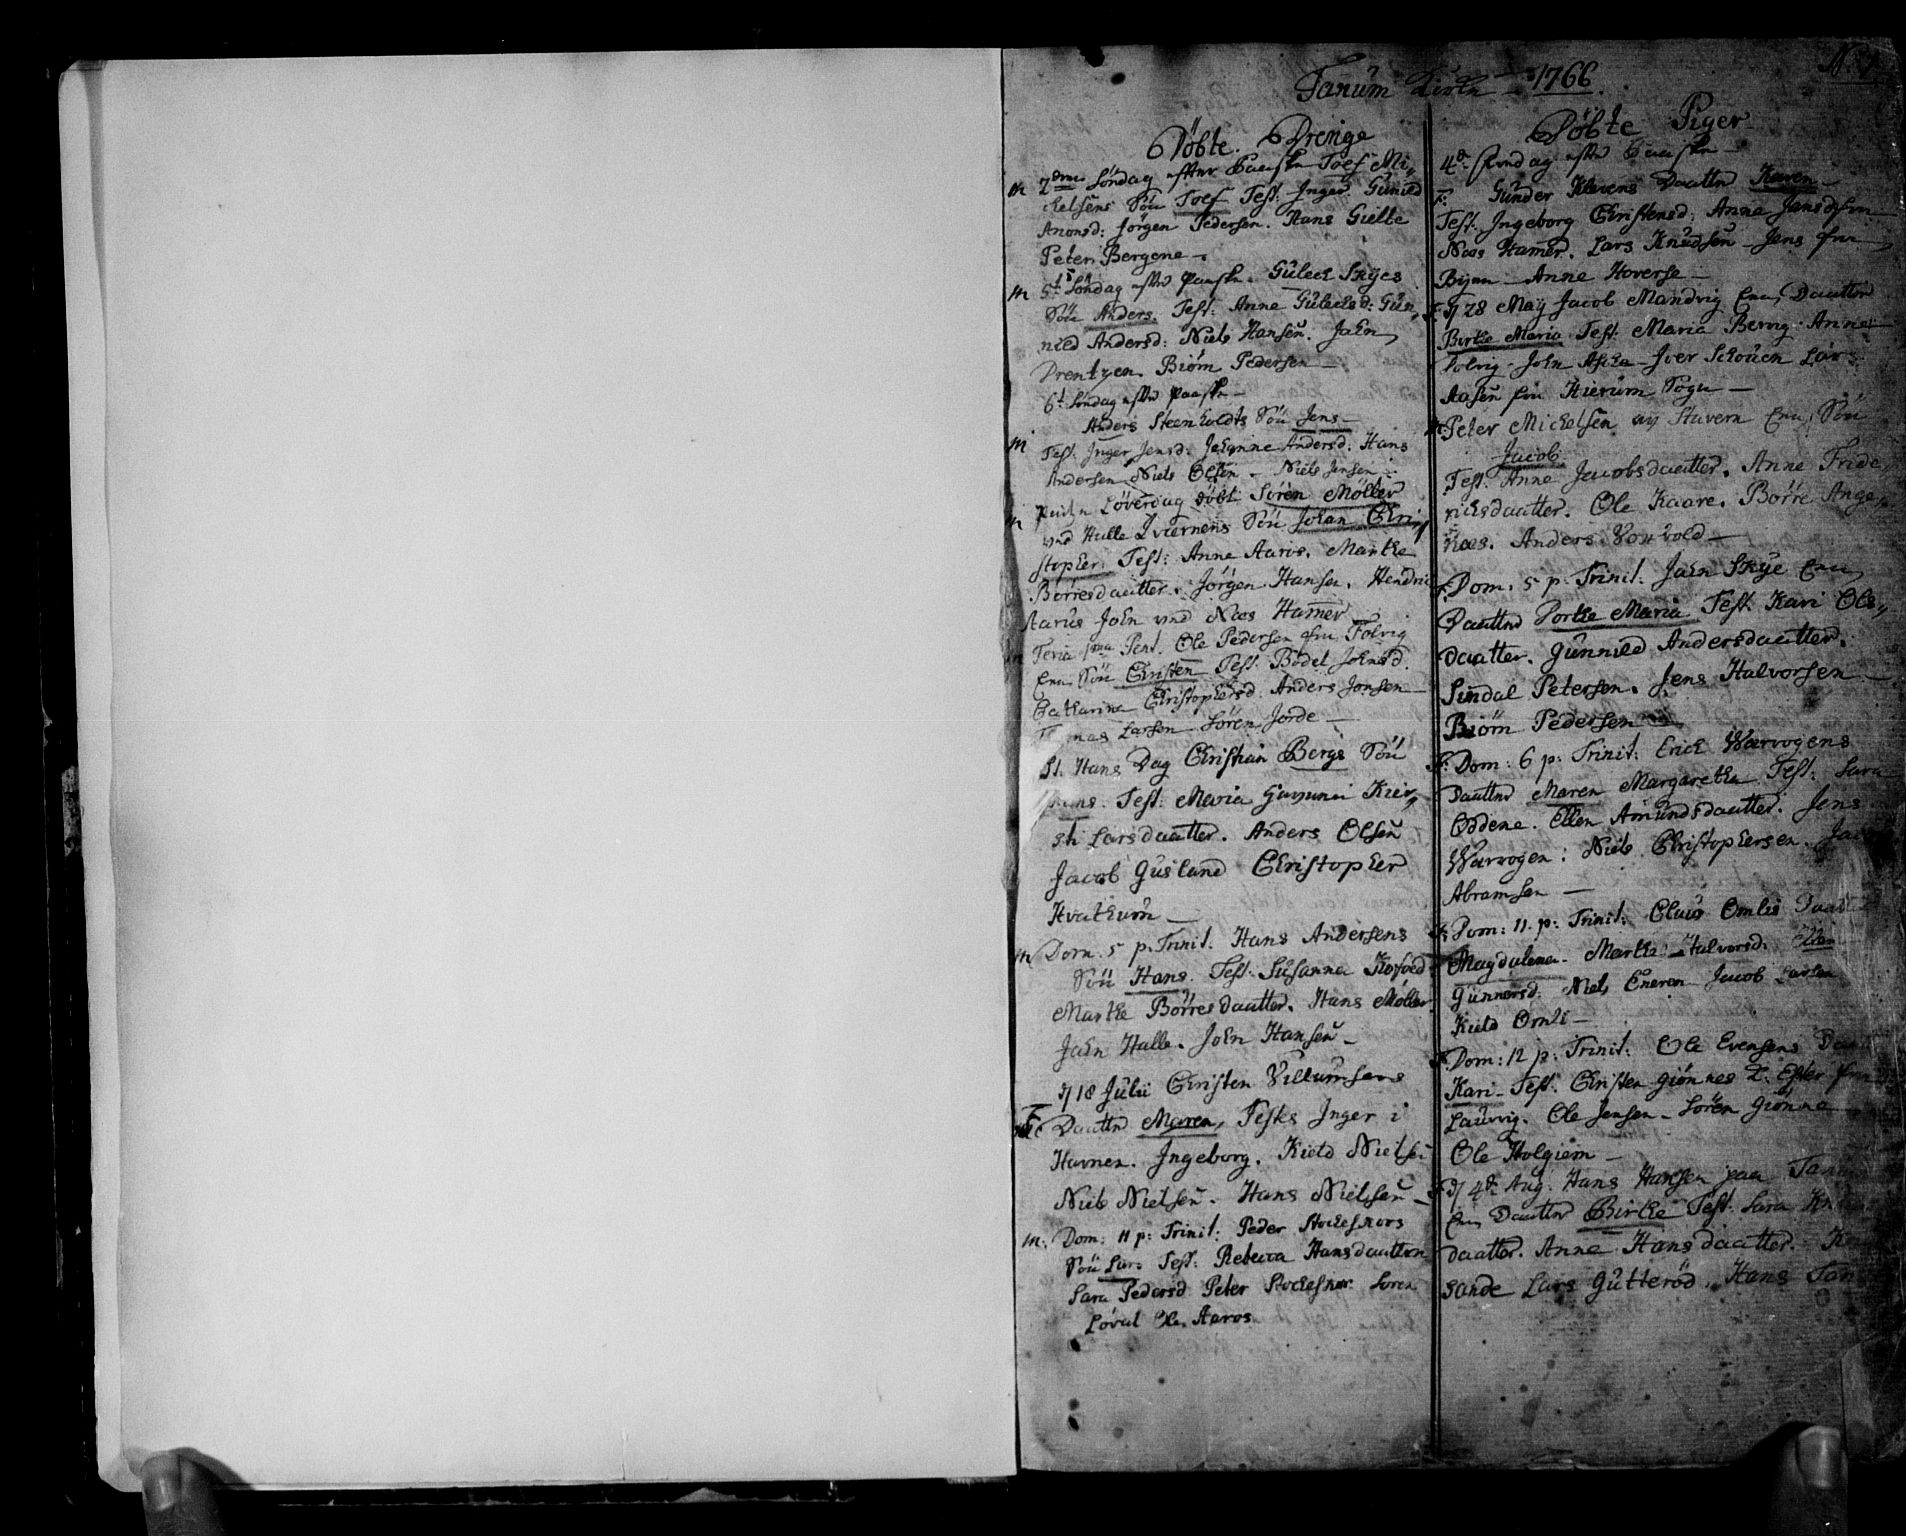 Tanum Kirke – 1766.
N. 1
Döbte. Drenge
m 2den Söndag efter Paaske Toef Mi-
ckelsens Sön Toef Test: Inger Gunild
Anonsd: Jörgen Pedersen. Hans Gielte
Peter Bergene –
m 5t Söndag efter Paaske. Guleck Skyes
Sön Anders. Test: Anne Gulecksd: Gun-
nild Andersd: Niels Hansen. Jahn
Drentzen. Biörn Pedersen –
6t Söndag efter Paaske –
Anders Steenholdts Sön Jens –
m Test: Inger Jensd: Johanne Andersd: Hans
Andersen Niels Olsen – Niels Jensen
Löverdag döbt Sören Möller
m ved Halle Sön Johan Chri-
stopher. Test: Anne Aaros. Marthe
Börresdaatter. Jörgen Hansen. Hendric
Aarus John ved Naes Hamer
Feria 1ma Pent. Ole Pedersen fra Folvig
Sön Christen Test. Bodel Johnsd.
Catharina Christophersd. Anders Jonsen –
Larsen Sören Jorde –
St. Hans Dag Christian Bergs Sön
Hans. Test: Maria Kier-
sti Larsdaatter. Anders Olsen
Jacob Gusland Christopher
Hvatkum –
m Dom. 5 p. Trinit. Hans Andersens
Sön Hans. Test: Susanna Kofoed
Marthe Börresdaatter. Hans Möller
Jahn Halle. John Hansen –
D 18 Julii Christen Villumsens
F Daatter Maren, Testes Inger i
Havnen. Ingeborg. Kield Nielsen
Niels Nielsen. Hans Nielsen –
m: Dom: 11 p: Trinit: Peder Stockesnors
Sön Lars Test: Rebecca Hansdaatter
Sara Pedersd Peter Stockesnor Soren
Löval Ole Aaros.
Döbte Piger
4de Söndag efter Paaske –
F: Gunder Klevens Daatter Karen –
Test. Ingeborg Christensd: Anna Jensd fra
Naes Hamer. Lars Knudsen – Jens fra
Byen – Anne Hoverse –
F: D 28 May Jacob Mandvig Daatter
Birthe Maria Test. Maria Bervig. Anne
Folvig. John Aske – Iver Schouen Lars
Aasen fra Hierum Sogn –
m Peter Mickelsen Stavern Sön
Jacob
Test. Anne Jacobsdaatter. Anne Fride-
richsdaatter. Ole Kaare. Börre Ange-
naes. Anders Vouvold –
F. Dom. 5 p. Trinit. Jahn Skye
Daatter Dorthe Maria Test. Kari Ols-
daatter. Gunnild Andersdaatter.
Sundal Petersen. Jens Halvorsen –
Biörn Pedersen –
F. Dom: 6 p: Trinit: Erich Warvogens
Daatter Maren Margaretha Test. Sara
Oddene. Ellen Amundsdaatter. Jens
Warvogen: Niels Christophersen.
Abramsen –
F: Dom: 11. p: Trinit: Claus Omlis
Magdalena. Marthe Halvorsd. Ellen
Gunnersd. Niels Eneren Jacob Larsen
Kield Omli –
F. Dom: 12 p: Trinit: Ole Evensens
Kari – Test. Christen Giönnes D. Ester fra
Laurvig. Ole Jensen – Sören Giönne
Ole Holgiem –
F D 4de Aug. Hans Hansen paa
Daatter Birthe Test. Sara
daatter. Anne Hansdaatter.
Sande Lars Gutteröd. Hans